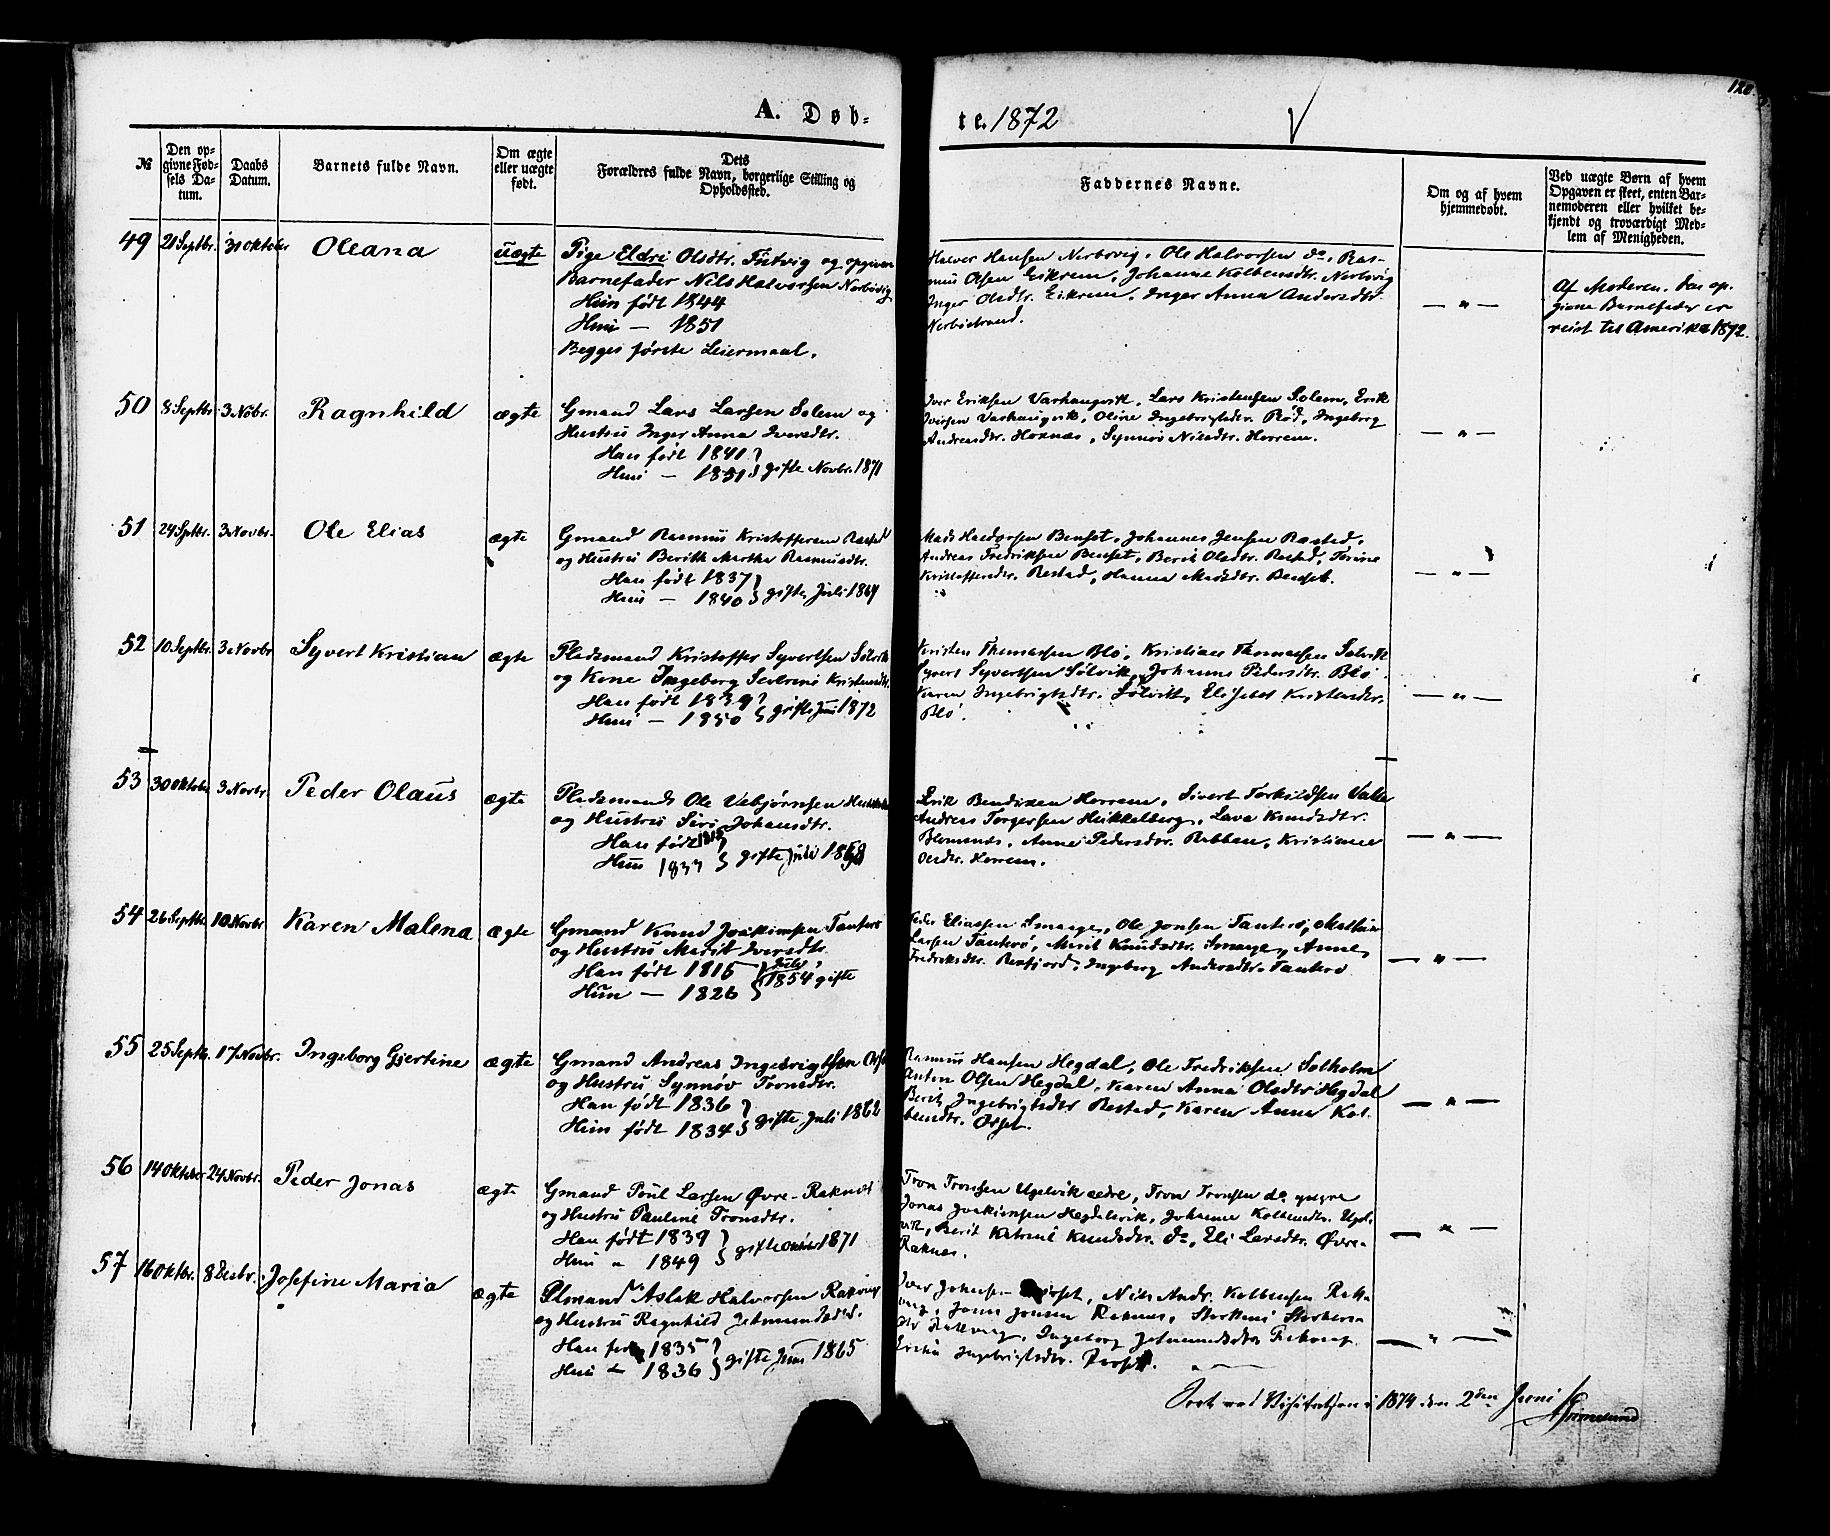 A. Døb-
te. 1872
120.
№
Den op-
givne Fød-
sels Da-
tum.
Daabs
Datum.
Barnets fulde Navn.
Om ægte
eller uægte
født.
Dets
Forældres fulde Navn, borgerlige Stilling og
Opholdssted.
Faddernes Navne.
Om og af hvem
hjemmedøbt.
Ved uægte Børn af hvem
Opgaven er skeet, enten Bar-
nemoderen eller hvilket be-
kjendt og troværdigt Med-
lem af Menigheden.
49 21 Septbr. 31 Oktober Oleana uægte
Pige Eldri Olsdtr. og opgiven
Barnefader Nils Halvorsen Nerbövig
Hun født 1844
1851
Begges første Leiermaal.
Halvor Hansen Nerbövig, Ole Halvorsen do, Ras-
mus Olsen Eikrem, Johanne Kolbensdtr. Nerbövig
Inger Olsdtr. Eikrem, Inger Anna Andersdtr.
Nerböstrand.
— " —
Af Moderen. Den op-
givne Barnefader er
reist til Amerika 1872.
50 8 Septbr. 3 Nobr. Ragnhild ægte
Gmand Lars Larsen Solem og
Hustru Inger Anna Iversdtr.
Han født 1841 }
Hun — 1851 } gifte Novbr. 1871
Iver Eriksen Varhaugvik, Lars Kristensen Solem, Erik
Iversen Varhaugvik, Oline Ingebrigtsdtr. Röd, Ingeborg
Andreasdtr. Hoxnæs, Synnöv Nilsdtr. Herrem.
— " —
51 24 Sptbr. 3 Novbr. Ole Elias ægte
Gmand Rasmus Kristoffersen Ræstad
og Hustru Berith Martha Rasmusdtr.
Han født 1837 }
Hun — 1840 } gifte Juli 1869
Mads Haldorsen Benset, Johannes Jensen Ræstad,
Andreas Fredriksen Benset, Berit Olsdtr. Restad,
Kristoffersdtr. Restad, Hanna Madsdtr. Benset.
— " —
52 10 Septbr. 3 Novbr. Syvert Kristian ægte
Pladsmand Kristoffer Syvertsen Sölvik
og Kone Ingeborg Severine Kristensdtr.
Han født 1839 }
Hun — 1850 } gifte Juni 1872
Kristen Thomassen Blö, Kristian Thomassen Sölvik
Syvert Syvertsen Sölvik, Johanne Pedersdtr. Blö
Karen Ingebrigtsdtr. Sölvik, Elisabet Kristensdtr.
Blö.
— " —
53 30 Oktober 3 Novbr. Peder Olaus ægte
Pladsmand Ole Vebjørnsen
og Hustru Siri Johansdtr.
Han født 1815 }
Hun 1833 } gifte Juli 1868
Erik Bendixen Herrem, Sivert Torkildsen
Andreas Torgersen Heikkelberg, Lava Knudsdtr.
Anne Pedersdtr. Rabben, Kristianne
Olsdtr. Herrem.
— " —
54 26 Septbr. 10 Novbr. Karen Malena ægte
Gmand Knud Joakimsen Tauterö
og Hustru Marit Iversdtr.
Han født 1815 }
Hun — 1826 } Juli 1854 gifte
Peder Eliassen Smaage, Ole Jonsen Tauterö,
Larsen Tauterö, Marit Knudsdtr. Smaage, Anne
Fredriksdtr. Ingeborg Andersdtr. Tauterö
— " —
55 25 Septbr. 17 Novbr. Ingeborg Gjertine ægte
Gmand Andreas Ingebrigtsen
og Hustru Synnöv Tronsdtr.
Han født 1836 }
Hun født 1834 } gifte Juli 1862
Rasmus Hansen Hegdal, Ole Fredriksen Solholm
Anton Olsen Hegdal, Karen Anna Olsdtr Hegdal
Berit Ingebrigtsdtr Restad, Karen Anna Kol-
bendtr. Orset.
— " —
56 14 Oktober 24 Novbr. Peder Jonas ægte
Gmand Poul Larsen Övre-Raknes
og Hustru Pauline Tronsdtr.
Han født 1839 }
Hun " 1849 } gifte Oktober 1871
Tron Tronsen Ugelvik ældre, Tron Tronsen do yngre
Jonas Joakimsen Hegdalsvik, Johanne Kolbensdtr. Ugel-
vik, Berit Katrine Knudsdtr. do, Eli Larsdtr. Övre-
Raknes.
— " —
57 16 Oktbr. 8 Desbr. Josefine Maria ægte
Plmand Aslak Halvorsen Rakvaag
og Hustru Ragnhild Jetmundsdtr.
Han født 1835 }
Hun — 1836 } gifte Juni 1865
Iver Johnsen Nils Andr. Kolbensen Rak-
vaag, Jonsen Raknes,
Rakvaag, Ingeborg Jetmundsdtr Rakvaag
Ingebrigtsdtr.
— " —
ved Visitatsen i 1874 den 2den Juni